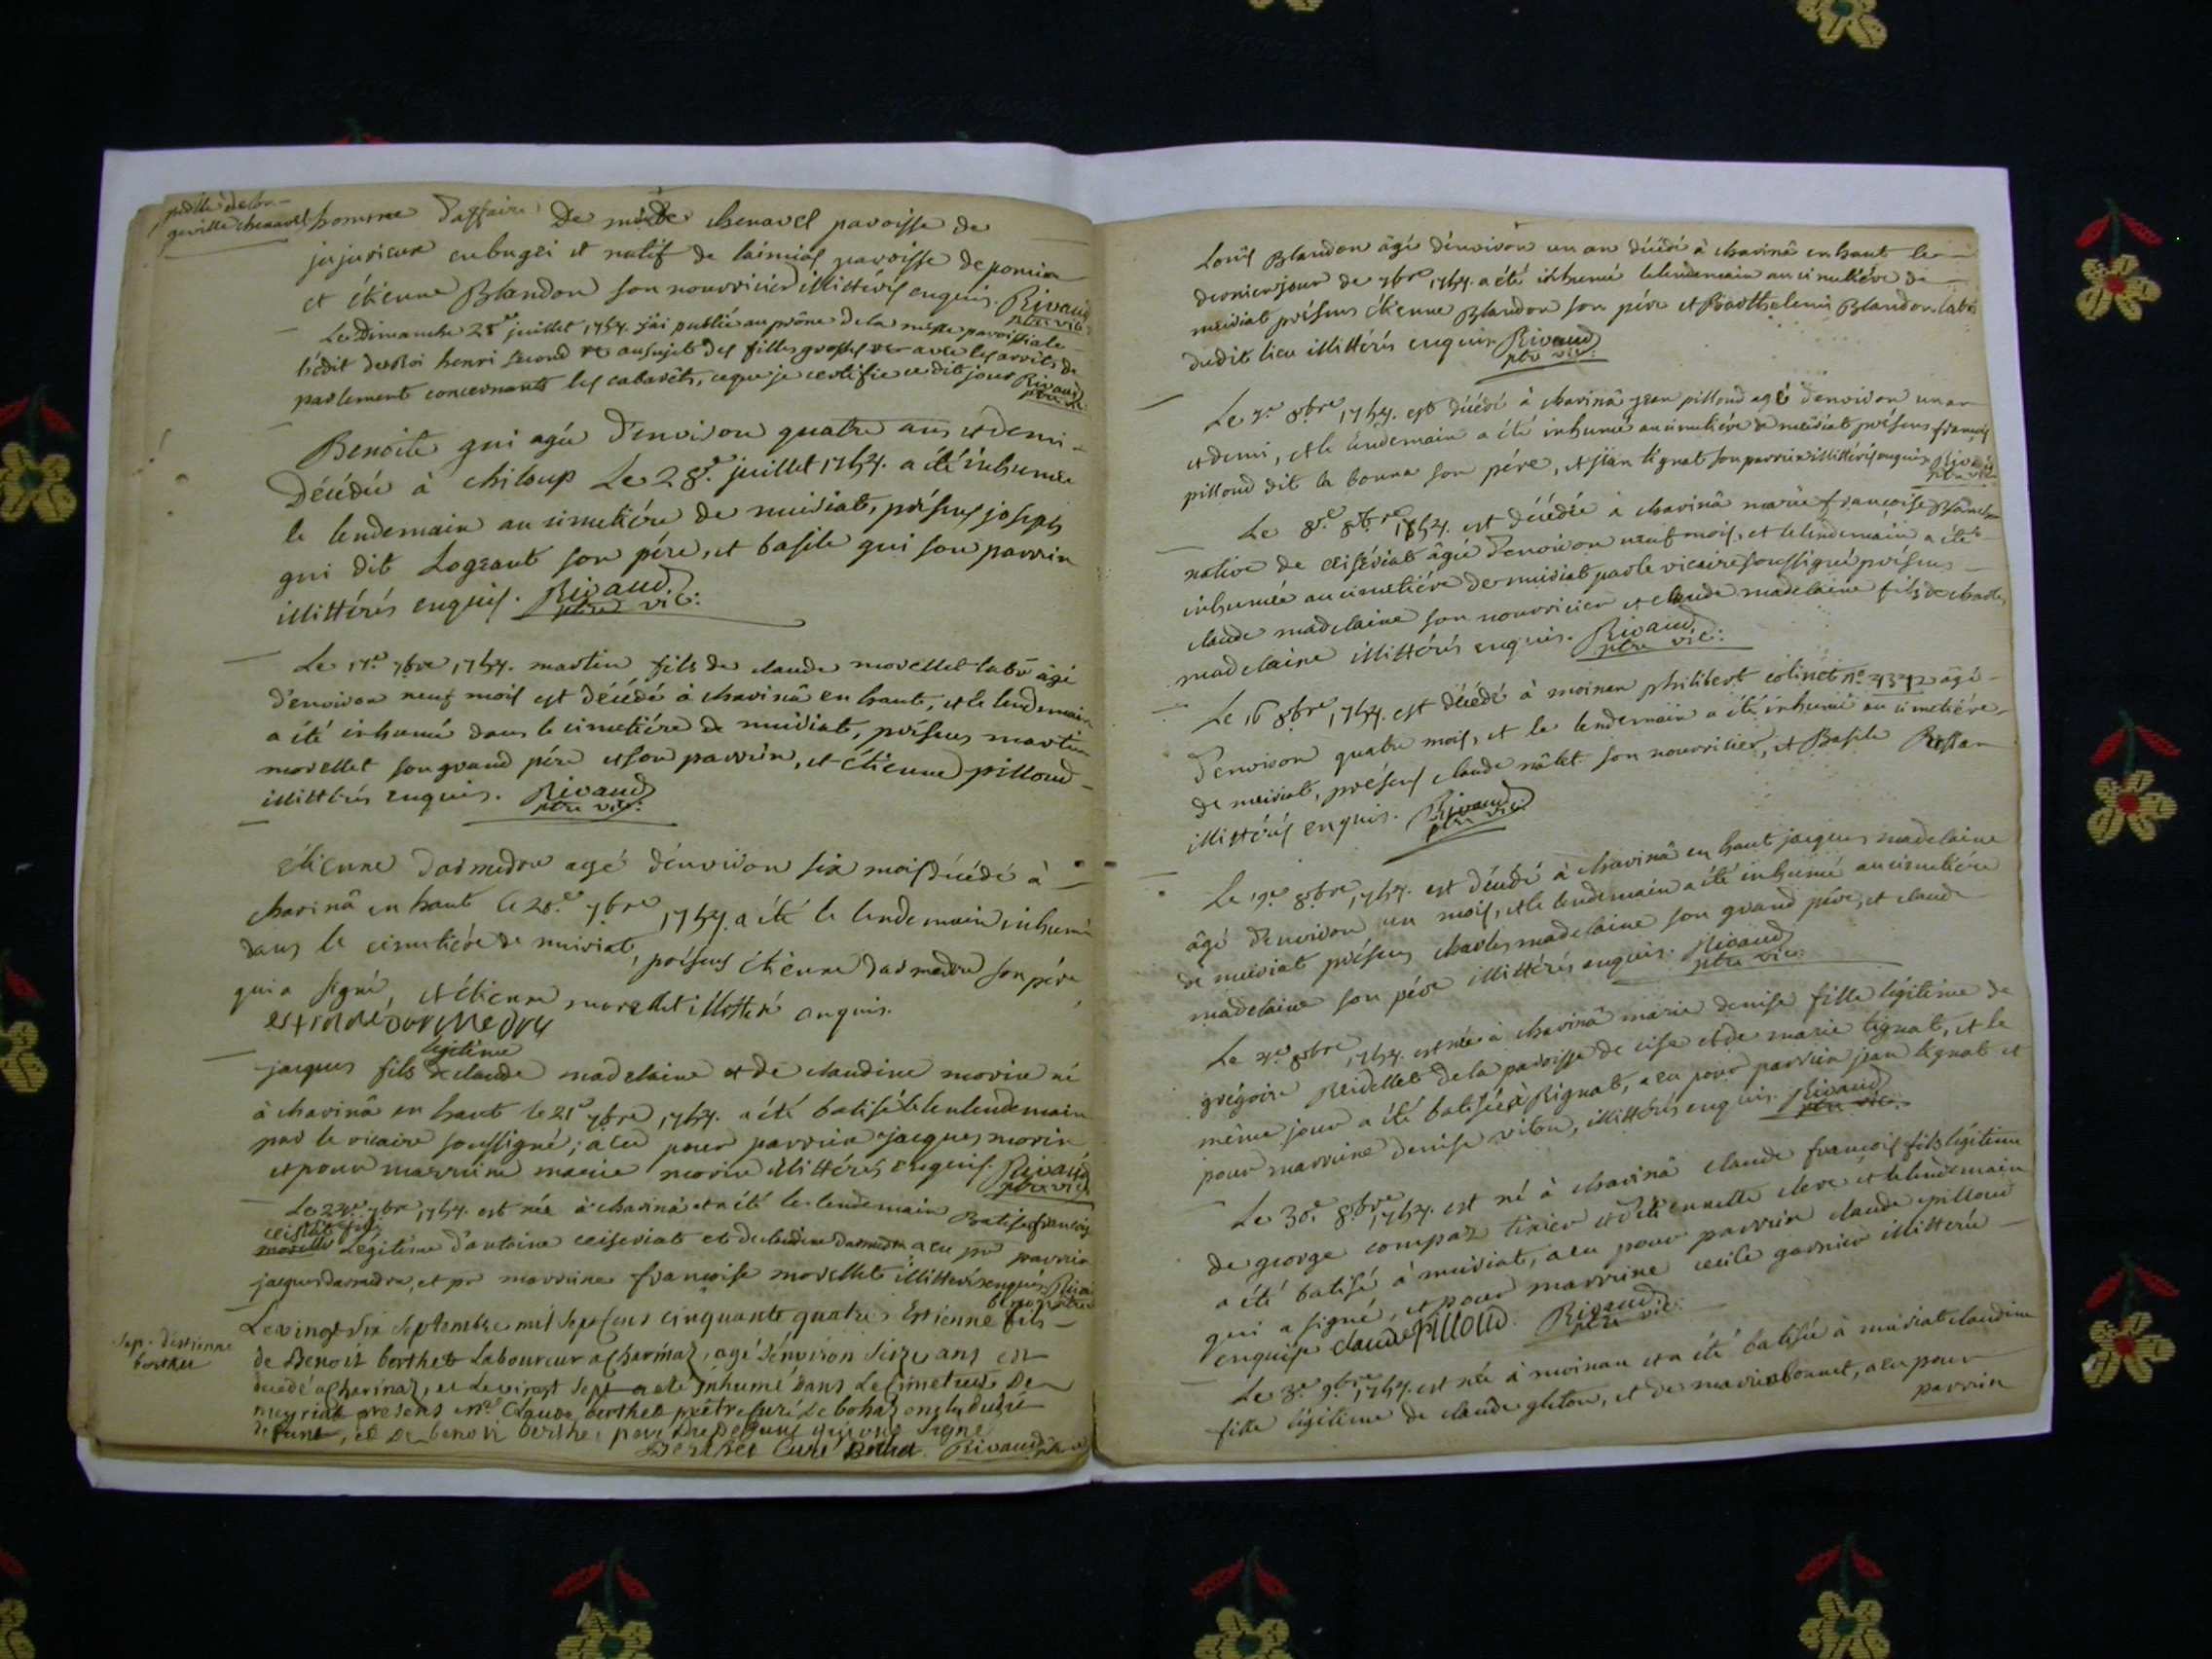 homme d'affaire De chenavel paroisse de
jujurieux en bugei et natif de paroisse de poncin
et étienne Blandon son nourricier illittérés enquis. Rivaud
ptre vic:
Le Dimanche 28e juillet 1754. j'ai publié au prône de la messe paroissiale
l'édit du Roi henri second au sujet des filles grosses avec les arrêts de
parlement concernants les cabarêts, ce que je certifie ce dit jour Rivaud
ptre vic
Benoite gui agée d'environ quatre ans et demi
Décédée à chiloup Le 28e. juillet 1754. a été inhumée
le lendemain au cimetiére de meiriat, présens joseph
gui dit Logeant son pére, et basile gui son parrin
illittérés enquis. Rivaud.
ptre vic:
Le 17e 7bre 1754. martin fils de claude morellet labr âgé
d'environ neuf mois est décédé à chavinâ en haut, et le lendemain
a été inhumé dans le cimetiére de meiriat, présens martin
morellet son grand pére et son parrin, et étienne pilloud
illittérés enquis. Rivaud
ptre vic:
étienne darmedru agé d'environ six mois décédé à
chavinâ en haut le 20e. 7bre 1754. a été le lendemain inhumé
dans le cimetiére de meiriat, présens étienne darmedru son pére
qui a signé, et étienne morellet illittéré enquis.
estienne darmedru
legitime
jacques fils de claude madelaine et de claudine morin né
à chavinâ en haut le 21e 7bre 1754. a été batisé le lendemain
par le vicaire soussigné; a eu pour parrin jacques morin
et pour marrine marie morin illittérés enquis. Rivaud
ptre vic
Le 7bre 1754. est née à chavinâ et a été le lendemain Batisé
Légitime d'antoine ceiseriat et de claudine darmedru a eu pr parrin
jacques darmedru, et pr marrine françoise morellet illittérés enquis
Le vingt six septembre mil sept cens cinquante quatre Estienne fils
Sep. d'estienne
berthet
de Benoit berthet Laboureur a charinaz, agé d'environ seize ans est
decedé a charinaz, et Le vingt sept a eté inhumé dans Le Cimetiere De
meyriat presens Claude berthet prêtre curé de bohas
defunt, et De benoit berthet pere qui ont signé
Berthet Curé Berthet. Rivaud
Loüis Blandon âgé d'environ un an décédé à chavinâ en haut le
dernier jour de 7bre 1754. a été inhumé le lendemain au cimetiére de
meiriat présens étienne Blandon son pére et Barthelemi Blandon labr
dudit lieu illittérés enquis Rivaud
ptre vic:
Le 7e 8bre 1754. est décédé à chavinâ jean pilloud agé d'environ un an
et demi, et le lendemain a été inhumé au cimetiére de meiriat présens françois
pilloud dit la bonna son pére, et jean tignat son parrin illittérés enquis
Le 8e 8bre 1754. est décédée à chavinâ marie françoise
native de ceiseriat âgée d'environ neuf mois, et le lendemain a été
inhumée au cimetiére de meiriat par le vicaire soussigné présens
claude madelaine son nourricier et claude madelaine fils de charles
madelaine illittérés enquis. Rivaud
ptre vic:
Le 16 8bre 1754. est décédé à moinan philibert colinet no 4342 âgé
d'environ quatre mois, et le lendemain a été inhumé au cimetiére
de meiriat, présens claude nâlet son nourricier, et Basile
illittérés enquis. Rivaud
ptre vic:
Le 19e 8bre 1754. est décédé à chavinâ en haut jacques madelaine
âgé d'environ un mois, et le lendemain a été inhumé au cimetiére
de meiriat présens charles madelaine son grand pére, et claude
madelaine son pére illittérés enquis. Rivaud
ptre vic:
Le 8bre 1754. est née à chavinâ marie denise fille légitime de
grégoire Reidellet de la paroisse de cise et de marie tignat, et le
même jour a été batisée à Rignat, a eu pour parrin jean tignat et
pour marrine denise vitou, illittérés enquis. Rivaud
ptre vic:
Le 30e 8bre 1754. est né à chavinâ claude françois fils légitime
de george compaz tixier et d'étiennette clerc et le lendemain
a été batisé à meiriat, a eu pour parrin claude pilloud
qui a signé, et pour marrine cecile garnier illittérée
enquise Claude Pilloud. Rivaud
ptre vic:
Le 3e 9bre 1754. est née à moinan et a été batisée à meiriat claudine
fille légitime de claude gleton, et de marie bonnet, a eu pour
parrin